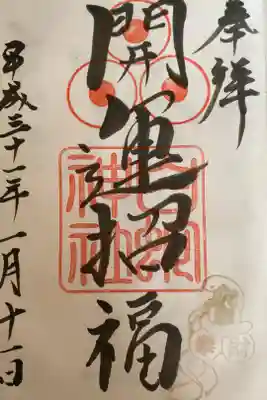 奉拝
開運招福
平成三十一年一月十一日